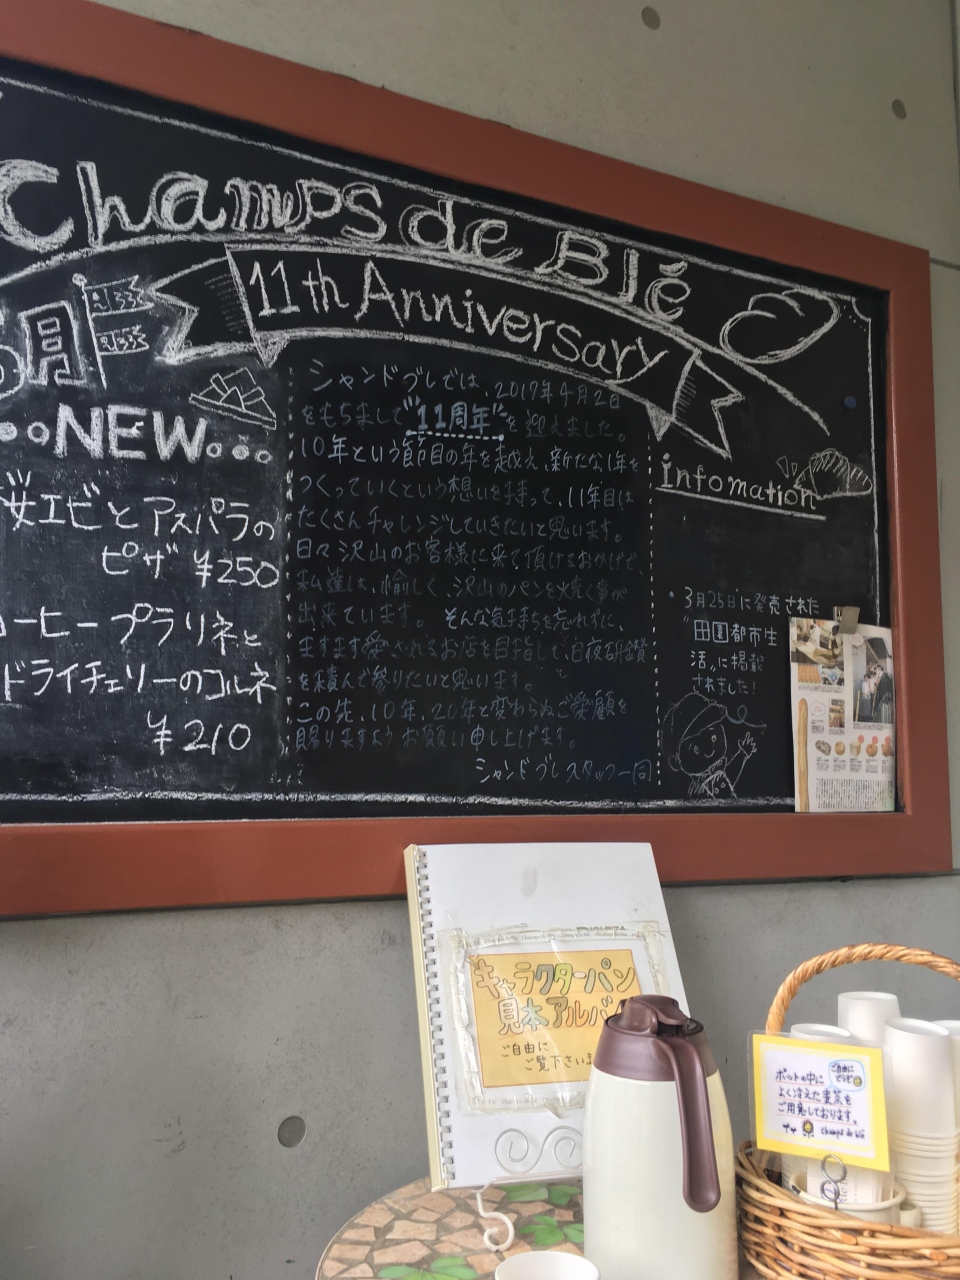 Champs de Blé
11th Anniversary
月
NEW
エビとアスパラの
ピザ ¥250
コーヒープラリネと
ドライチェリーのコルネ
¥210
シャンドブレでは、2017年4月2日
をもちまして"11周年"を迎えました。
10年という節目の年を越え、新たな1年を
つくっていくという想いを持って、11年目は
たくさんチャレンジしていきたいと思います。
日々沢山のお客様に来て頂けるおかげで、
私達は、愉しく、沢山のパンを焼く事が
出来ています。 そんな気持ちを忘れずに、
ますます愛されるお店を目指して、日夜研鑽
を積んで参りたいと思います。
この先、10年、20年と変わらぬご愛顧を
賜りますようお願い申し上げます。
シャンドブレスタッフ一同
infomation
3月25日に発売された
"田園都市生
活"に掲載
されました!
キャラクターパン
見本アルバム
ご自由に
ご覧下さいま
ご自由に
どうぞ
ポットの中に
よく冷えた麦茶を
ご用意しております。
champs de blé